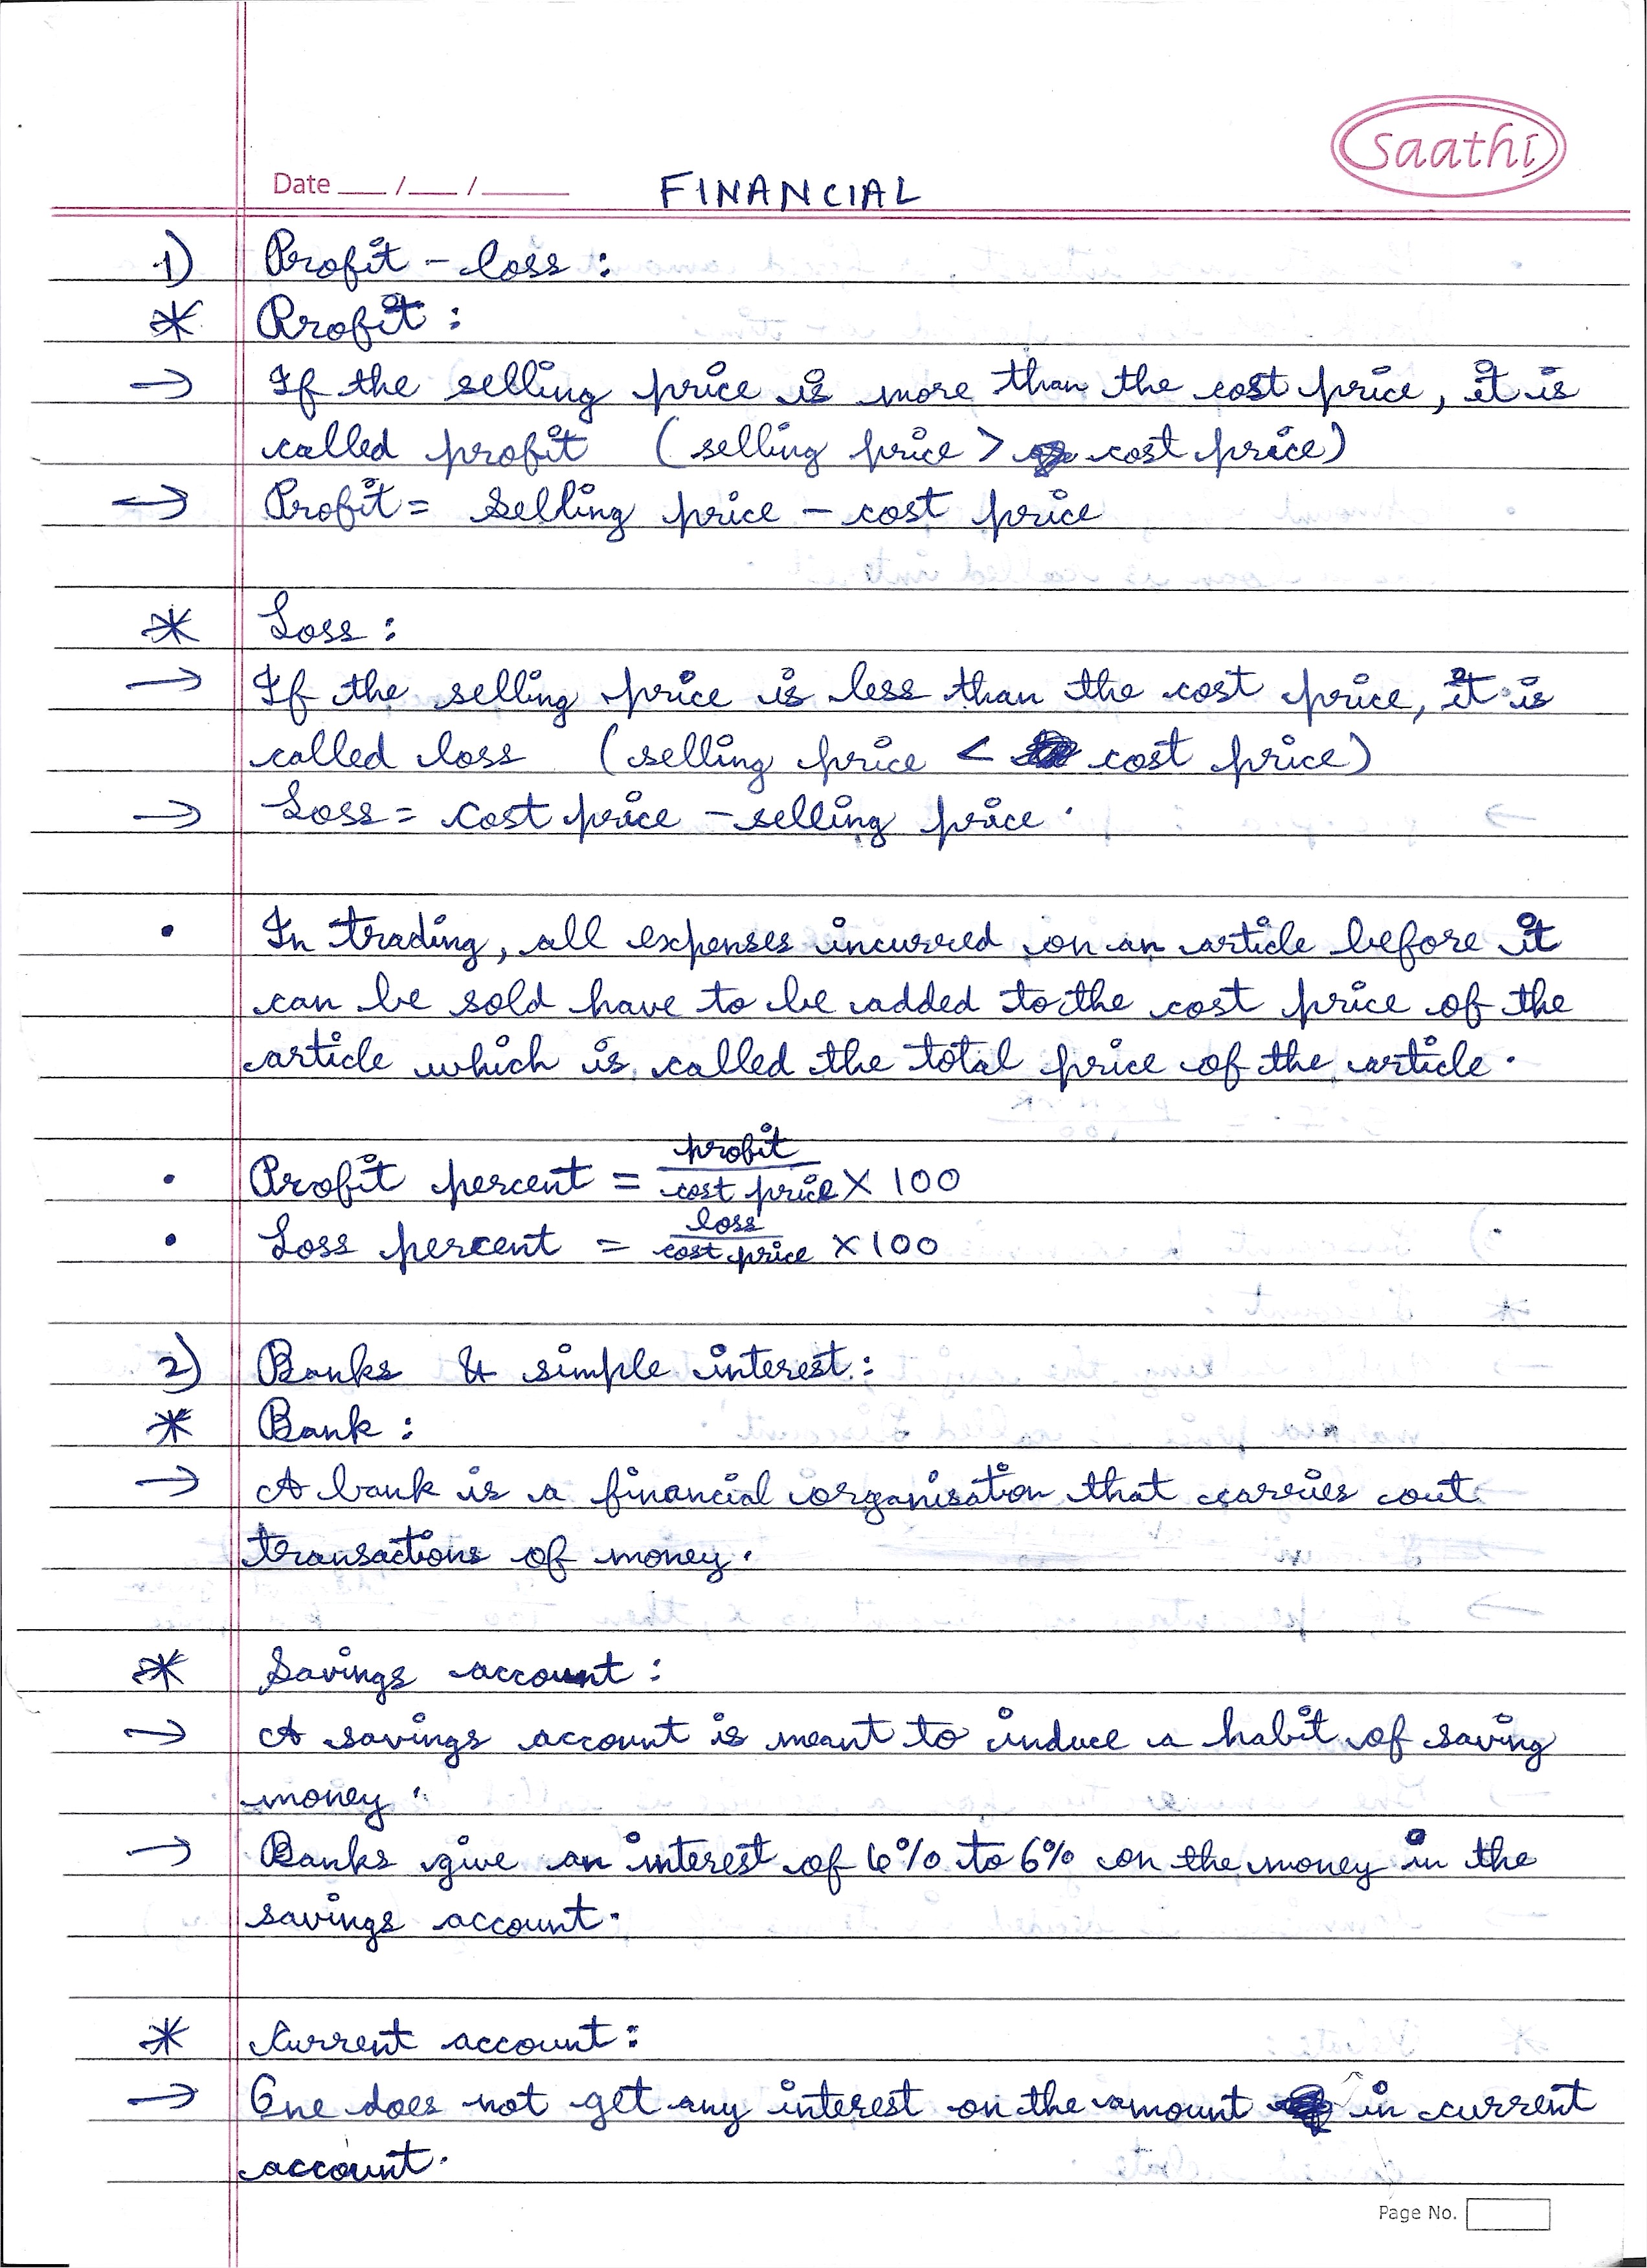 saathi
Date ___ / ___ / _____ FINANCIAL
1) Profit - loss :
* Profit :
→ If the selling price is more than the cost price, it is
called profit (selling price > cost price)
→ Profit = Selling price - cost price
* Loss :
→ If the selling price is less than the cost price, it is
called loss (selling price < cost price)
→ Loss = cost price - selling price.
• In trading, all expenses incurred on an article before it
can be sold have to be added to the cost price of the
article which is called the total price of the article.
• Profit percent = profit / cost price × 100
• Loss percent = loss / cost price × 100
2) Banks & simple interest :
* Bank :
→ A bank is a financial organisation that carries out
transactions of money.
* Savings account :
→ A savings account is meant to induce a habit of saving
money.
→ Banks give an interest of 6% to 6% on the money in the
savings account.
* Current account :
→ One does not get any interest on the amount in current
account.
Page No.